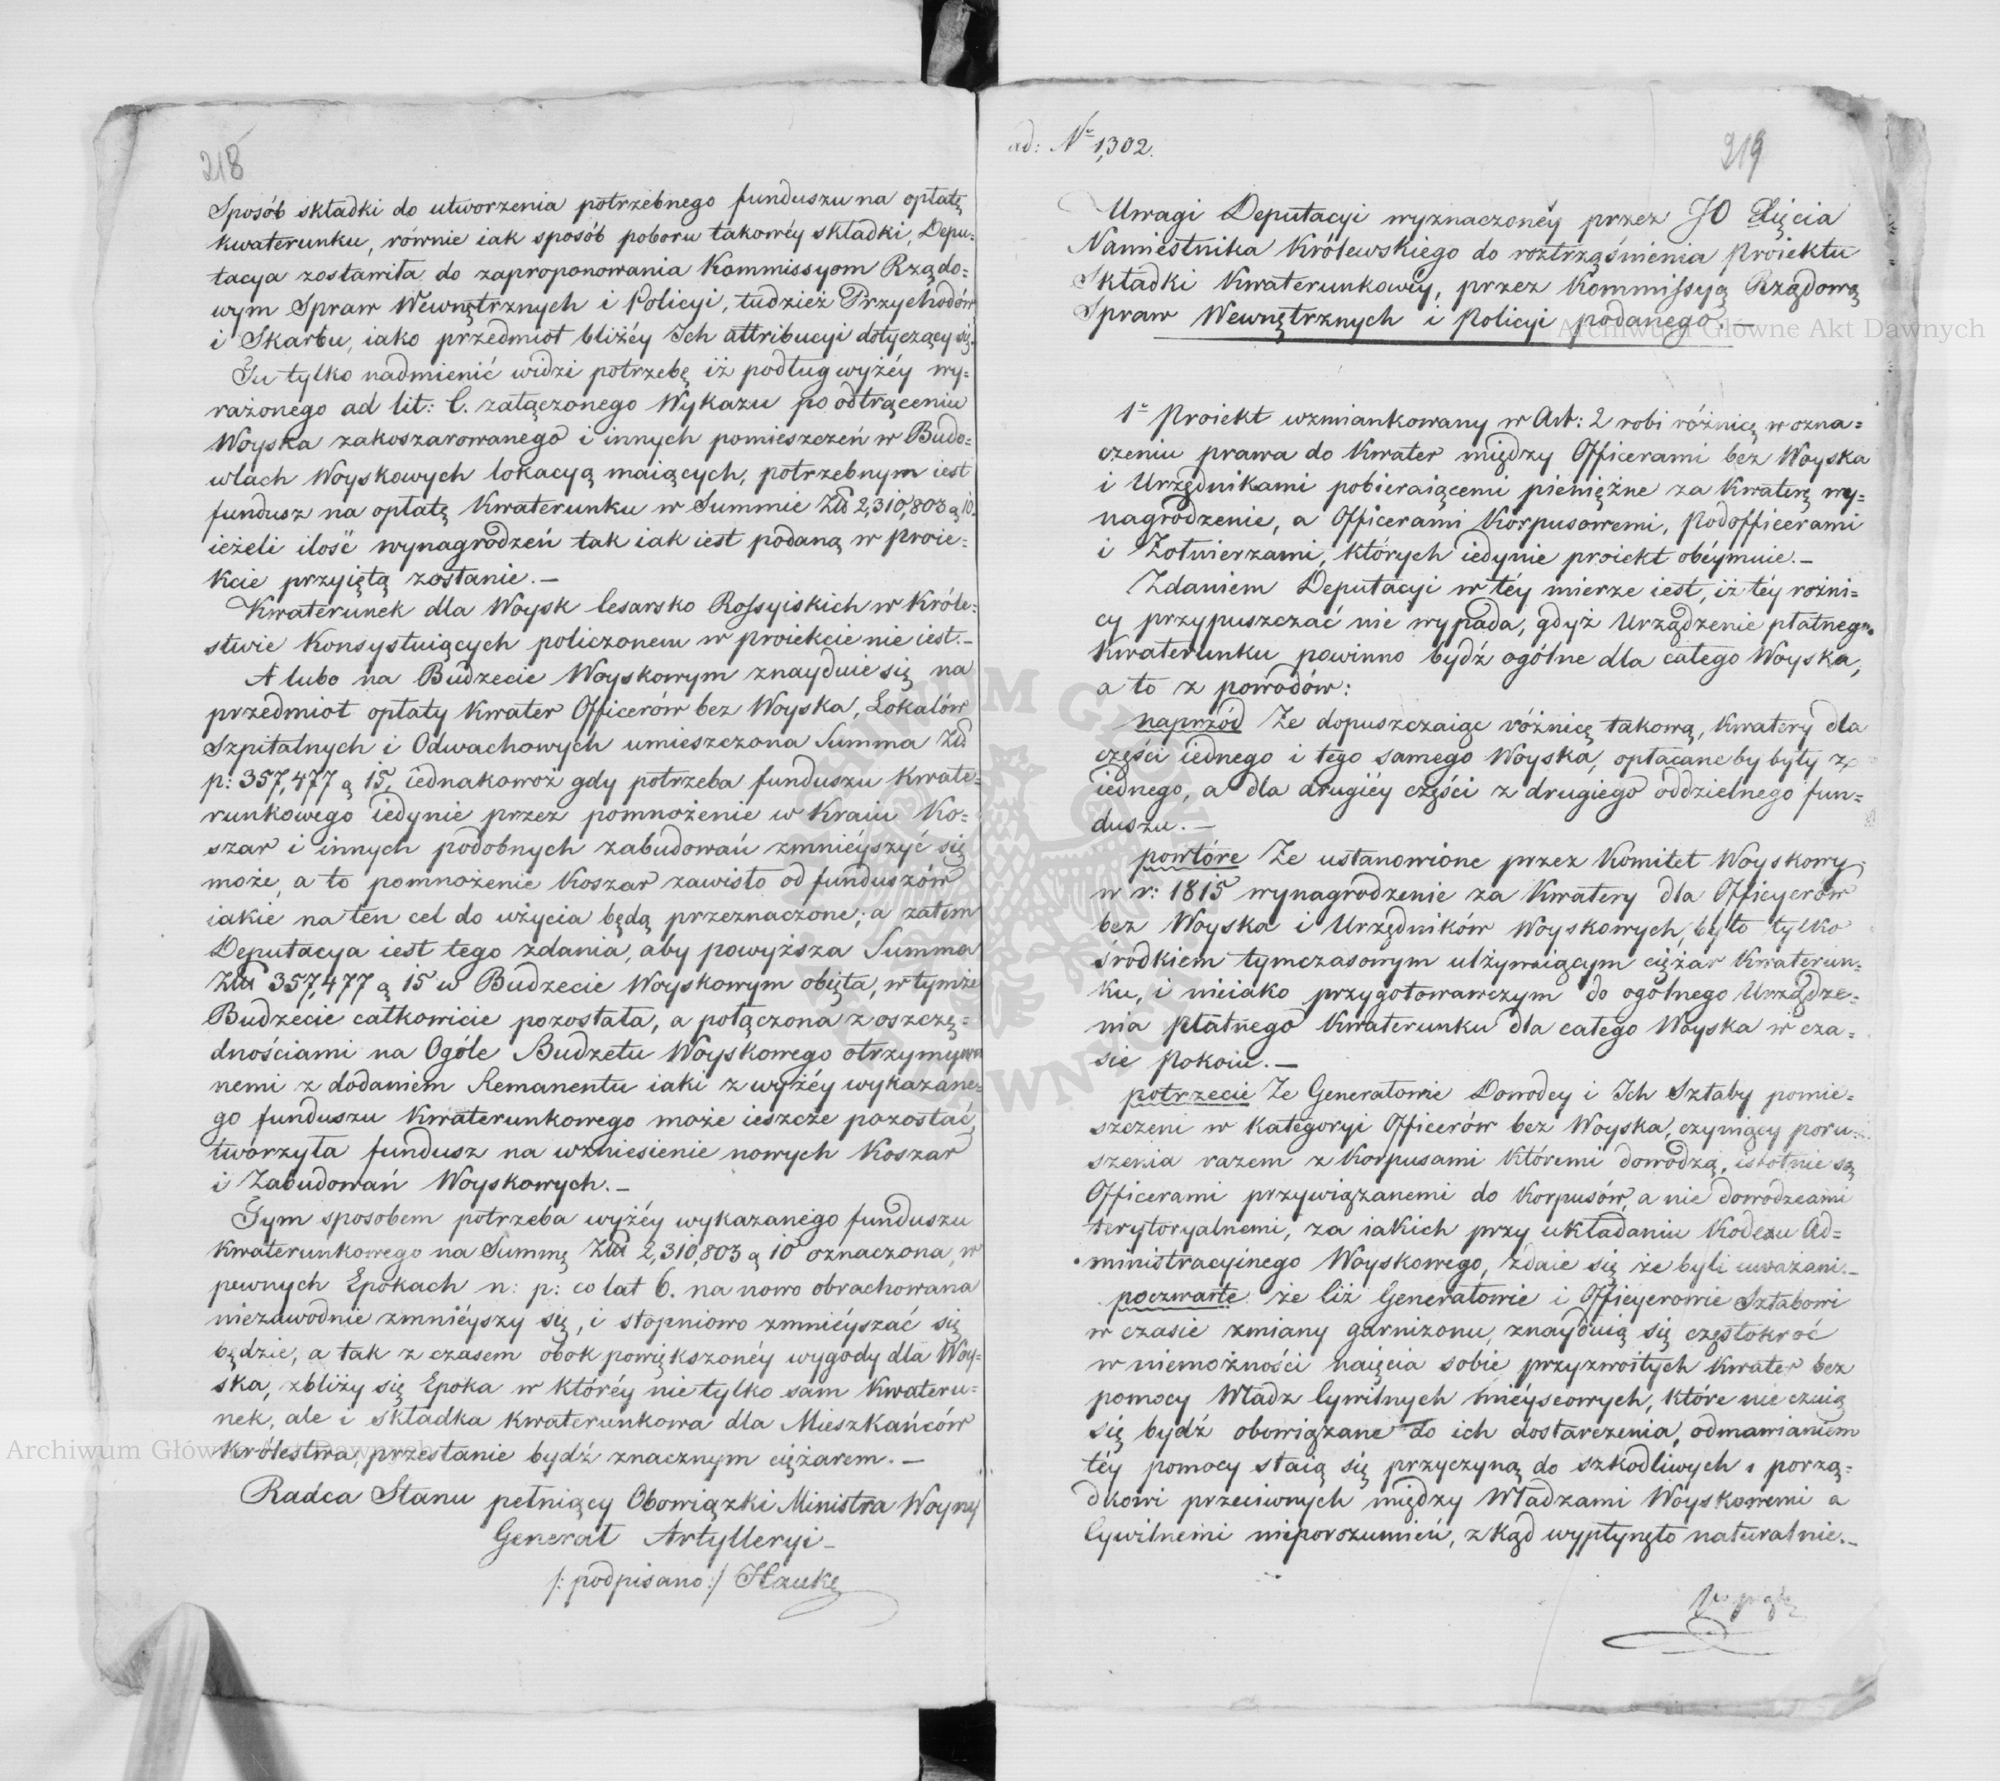 218
Sposób składki do utworzenia potrzebnego funduszu na opłatę
kwaterunku, równie iak sposób poboru takowéy składki, Depu-
tacya zostawiła do zaproponowania Kommissyom Rządo-
wym Spraw Wewnętrznych i Policyi, tudzież Przychodów
i Skarbu, iako przedmiot bliżéy Ich attribucyi dotyczący się.
Tu tylko nadmienić widzi potrzebę iż podług wyżéy wy-
rażonego ad lit: C. załączonego Wykazu po odtrąceniu
Woyska zakoszarowanego i innych pomieszczeń w Budo-
wlach Woyskowych lokacyą maiących, potrzebnym iest
fundusz na opłatę Kwaterunku w Summie Złł 2,310,803 g 10.
ieżeli ilość wynagrodzeń tak iak iest podaną w proie-
kcie przyiętą zostanie.—
Kwaterunek dla Woysk Cesarsko Rossyiskich w Króle-
stwie Konsystuiących policzonem w proiekcie nie iest.—
A lubo na Budżecie Woyskowym znayduie się na
przedmiot opłaty Kwater Officerów bez Woyska, Lokalów
Szpitalnych i Odwachowych umieszczona Summa Złł
p: 357,477 g 15, iednakowoż gdy potrzeba funduszu Kwate-
runkowego iedynie przez pomnożenie w Kraiu Ko-
szar i innych podobnych zabudowań zmniéyszyć się
może, a to pomnożenie Koszar zawisło od funduszów
iakie na ten cel do użycia będą przeznaczone; a zatém
Deputacya iest tego zdania, aby powyższa Summa
Złł 357,477 g 15 w Budżecie Woyskowym obięta, w tymże
Budżecie całkowicie pozostała, a połączona z oszczę-
dnościami na Ogóle Budżetu Woyskowego otrzymywa
nemi z dodaniem Remanentu iaki z wyżéy wykazane-
go funduszu Kwaterunkowego może ieszcze pozostać,
tworzyła fundusz na wzniesienie nowych Koszar
i Zabudowań Woyskowych.—
Tym sposobem potrzeba wyżéy wykazanego funduszu
kwaterunkowego na Summę Złł 2,310,803 g 10 oznaczona, w
pewnych Epokach n: p: co lat 6. na nowo obrachowana
niezawodnie zmniéyszy się, i stopniowo zmniéyszać się
będzie, a tak z czasem obok powiększonéy wygody dla Woy-
ska, zbliży się Epoka w któréy nie tylko sam Kwateru-
nek, ale i składka kwaterunkowa dla Mieszkańców
Królestwa, przestanie bydź znacznym ciężarem.—
Radca Stanu pełniący Obowiązki Ministra Woyny
Generał Artylleryi—
/: podpisano :/ Hauke
ad: Nº 1,302.
219
Uwagi Deputacyi wyznaczonéy przez JO Xięcia
Namiestnika Królewskiego do roztrząśnienia proiektu
Składki Kwaterunkowéy, przez Kommissyą Rządową
Spraw Wewnętrznych i Policyi podanego.—
1º Proiekt wzmiankowany w Art: 2 robi różnicę w ozna-
czeniu prawa do Kwater między Officerami bez Woyska
i Urzędnikami pobieraiącemi pieniężne za Kwaterę wy-
nagrodzenie, a Officerami Korpusowemi, Podofficerami
i Żołnierzami, których iedynie proiekt obéymuie.—
Zdaniem Deputacyi w téy mierze iest, iż téy rożni-
cy przypuszczać nie wypada, gdyż Urządzenie płatnego
Kwaterunku powinno bydź ogólne dla całego Woyska,
a to z powodów:
naprzód Że dopuszczaiąc różnicę takową, Kwatery dla
części iednego i tego samego Woyska, opłacane by były z
iednego, a dla drugiéy części z drugiego oddzielnego fun-
duszu.—
powtóre Że ustanowione przez Komitet Woyskowy
w r: 1815 wynagrodzenie za Kwatery dla Officyerów
bez Woyska i Urzędników Woyskowych, było tylko
środkiem tymczasowym ulżywaiącym ciężar Kwaterun-
ku, i nieiako przygotowawczym do ogólnego Urządze-
nia płatnego Kwaterunku dla całego Woyska w cza-
sie Pokoiu.—
potrzecie Że Generałowie Dowodcy i Ich Sztaby pomie-
szczeni w kategoryi Officerów bez Woyska, czyniący poru-
szenia razem z Korpusami któremi dowodzą, istotnie są
Officerami przywiązanemi do Korpusów, a nie dowodzcami
terytoryalnemi, za iakich przy układaniu Kodexu Ad-
ministracyinego Woyskowego, zdaie się że byli uważani.—
poczwarte że Ciż Generałowie i Officyerowie Sztabowi
w czasie zmiany garnizonu, znayduią się częstokroć
w niemożności naięcia sobie przyzwoitych Kwater bez
pomocy Władz Cywilnych miéyscowych, które nie czuią
się bydź obowiązane do ich dostarczenia, odmawianiem
téy pomocy staią się przyczyną do szkodliwych i porzą-
dkowi przeciwnych między Władzami Woyskowemi a
Cywilnemi nieporozumień, zkąd wypłynęło naturalnie.—
Archiwum Główne Akt Dawnych
Archiwum Główne Akt Dawnych